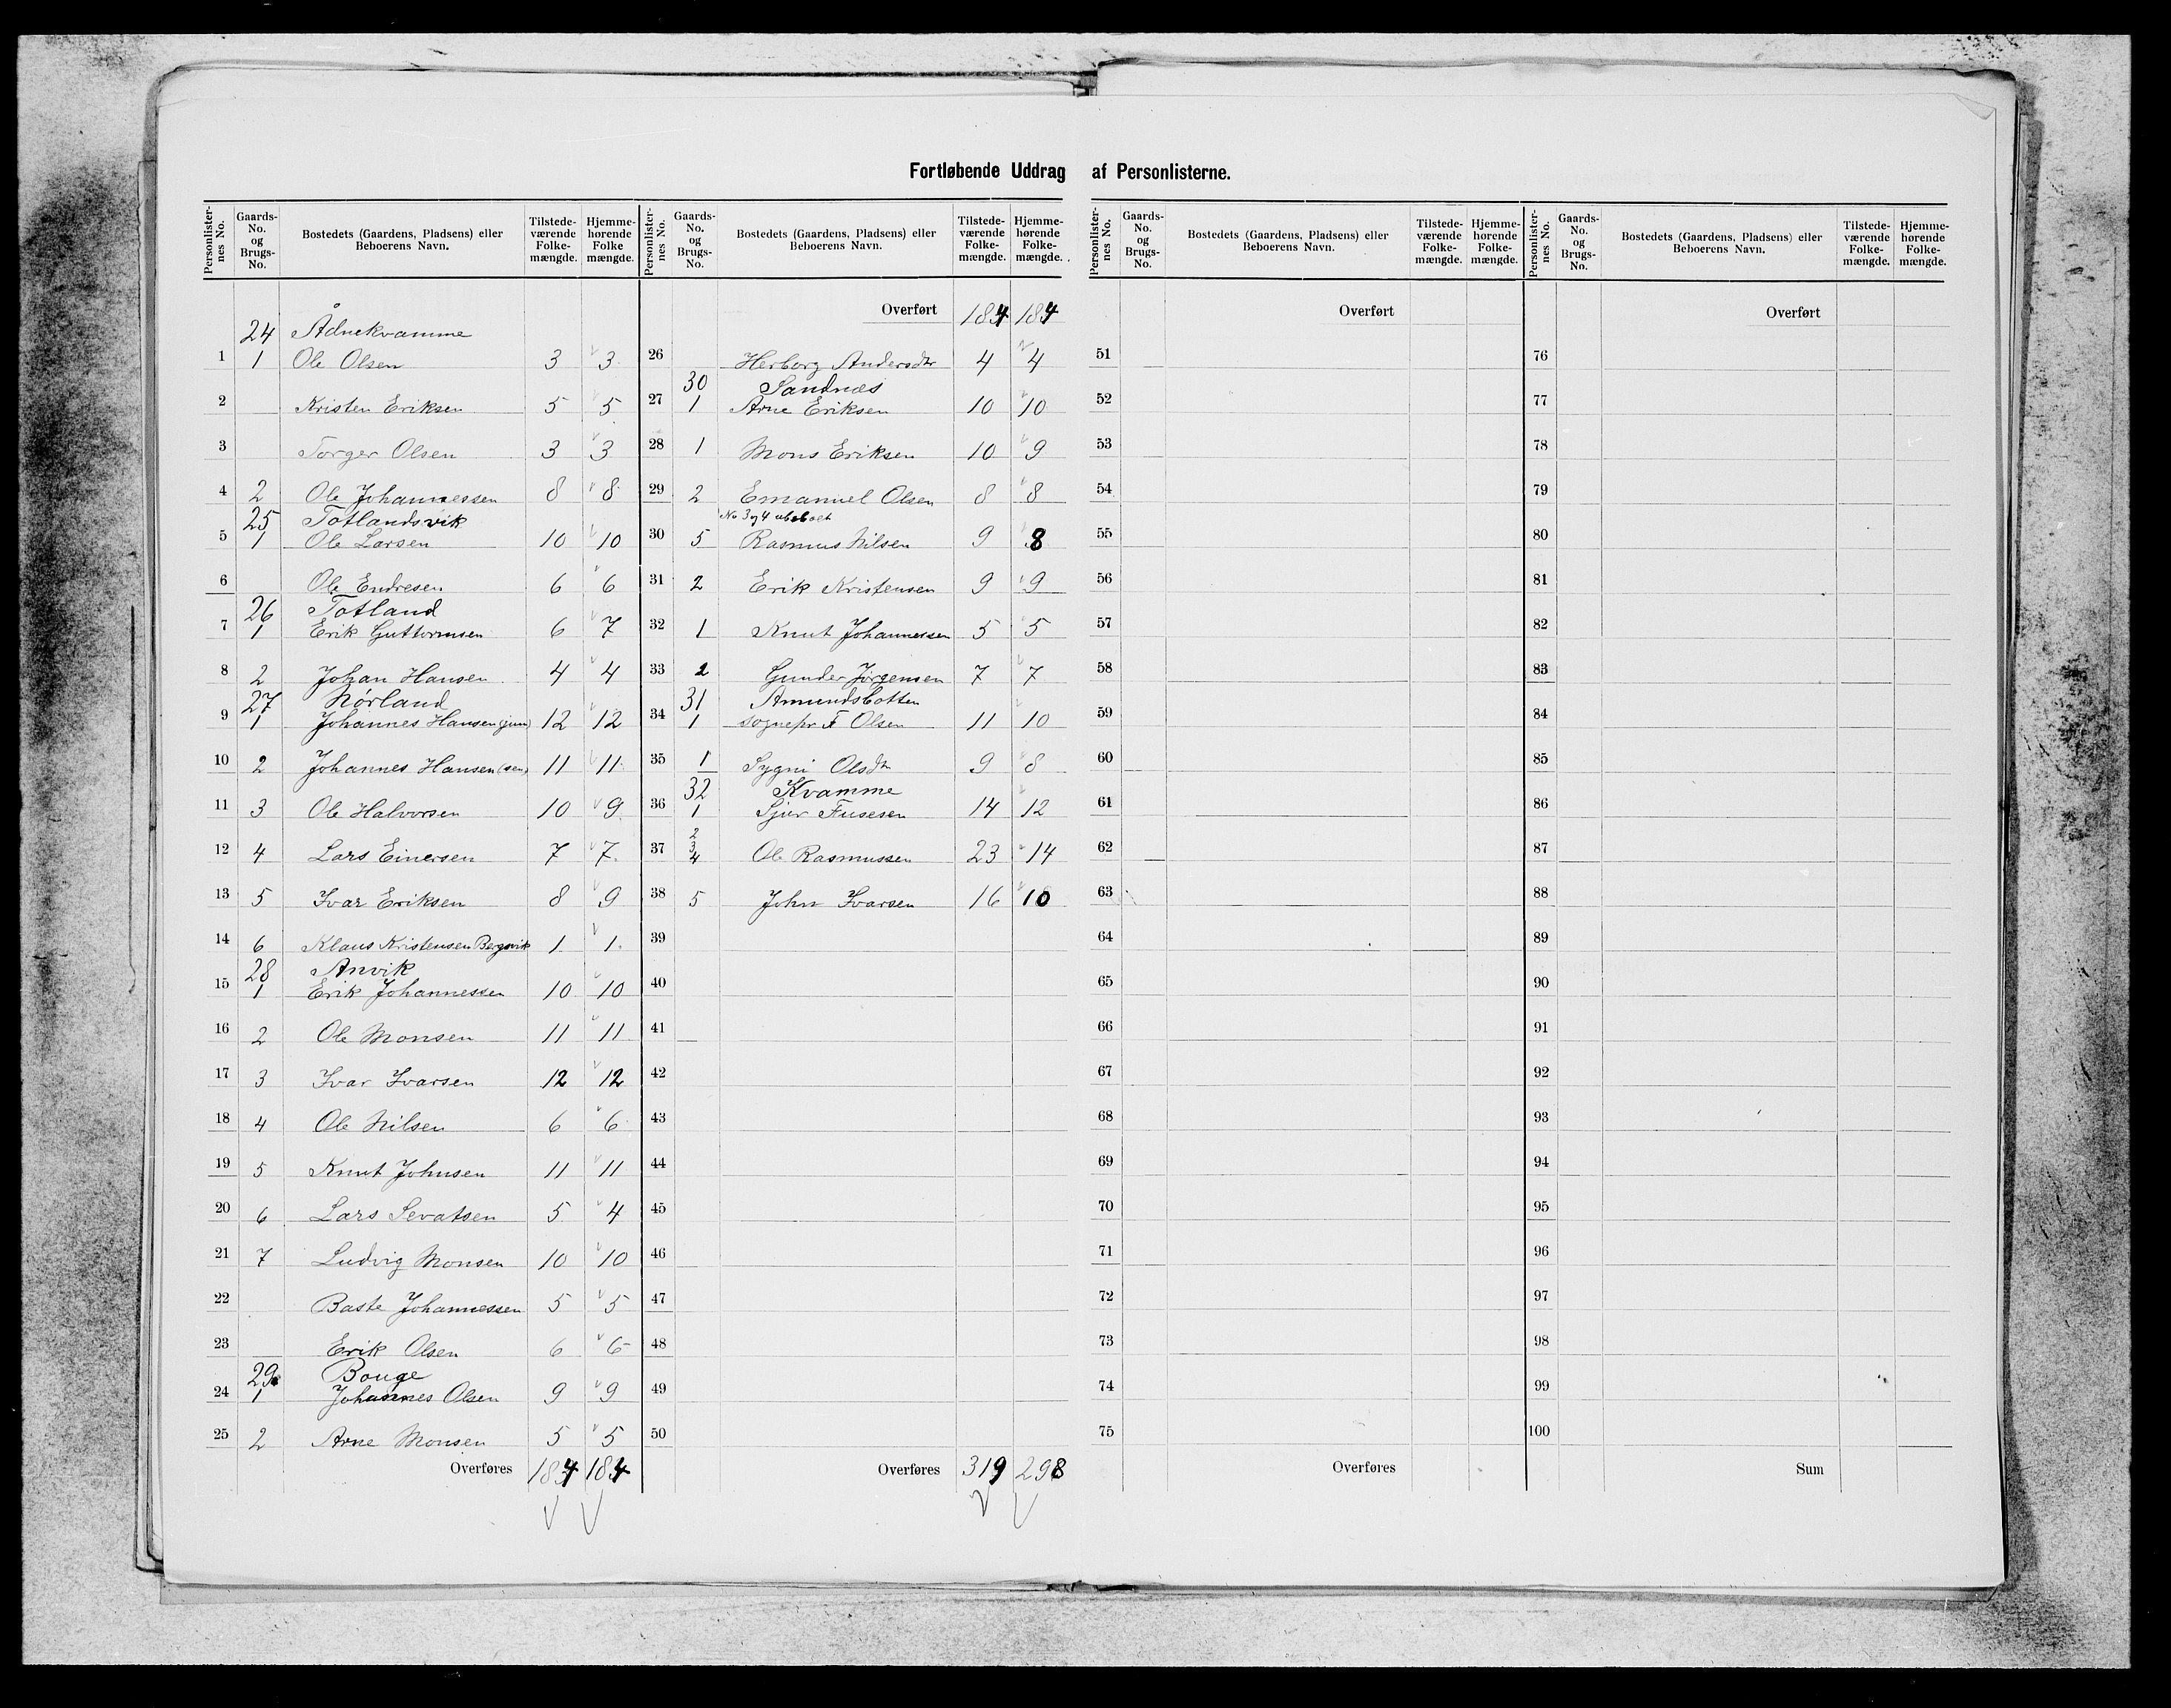 Fortløbende Uddrag af Personlisterne.
Personlister-nes No. Gaards-No. og Brugs-No. Bostedets (Gaardens, Pladsens) eller Beboerens Navn. Tilstede-værende Folke-mængde. Hjemme-hørende Folke mængde.
24 Ådnekvamme
1 1 Ole Olsen 3 3
2 Kristen Eriksen 5 5
3 Torger Olsen 3 3
4 2 Ole Johannessen 8 8
25 Totlandsvik
5 1 Ole Larsen 10 10
6 Ole Endresen 6 6
26 Totland
7 1 Erik Guttormsen 6 7
8 2 Johan Hansen 4 4
27 Nørland
9 1 Johannes Hansen (jun) 12 12
10 2 Johannes Hansen (sen) 11 11
11 3 Ole Halvorsen 10 9
12 4 Lars Einersen 7 7
13 5 Ivar Eriksen 8 9
14 6 Klaus Kristensen Bergsvik 1 1
28 Anvik
15 1 Erik Johannessen 10 10
16 2 Ole Monsen 11 11
17 3 Ivar Ivarsen 12 12
18 4 Ole Nilsen 6 6
19 5 Knut Johnsen 11 11
20 6 Lars Sevatsen 5 4
21 7 Ludvig Monsen 10 10
22 Baste Johannessen 5 5
23 Erik Olsen 6 6
29 Bouge
24 1 Johannes Olsen 9 9
25 2 Arne Monsen 5 5
Overføres 184 184
Personlister-nes No. Gaards-No. og Brugs-No. Bostedets (Gaardens, Pladsens) eller Beboerens Navn. Tilstede-værende Folke-mængde. Hjemme-hørende Folke-mængde.
Overført 184 184
26 Herborg Andersdtr 4 4
30 Sandnæs
27 1 Arne Eriksen 10 10
28 1 Mons Eriksen 10 9
29 2 Emanuel Olsen 8 8
No 3 og 4 ubeboet
30 5 Rasmus Nilsen 9 8
31 2 Erik Kristensen 9 9
32 1 Knut Johannessen 5 5
33 2 Gunder Jørgensen 7 7
31 Amundsbotten
34 1 sognepr F Olsen 11 10
35 1 Sygni Olsdtr 9 8
32 Kvamme
36 1 Sjur Fusesen 14 12
37 2 3 4 Ole Rasmussen 23 14
38 5 John Ivarsen 16 10
39
40
41
42
43
44
45
46
47
48
49
50
Overføres 319 298
Personlister-nes No. Gaards-No. og Brugs-No. Bostedets (Gaardens, Pladsens) eller Beboerens Navn. Tilstede-værende Folke-mængde. Hjemme-hørende Folke-mængde.
Overført
51
52
53
54
55
56
57
58
59
60
61
62
63
64
65
66
67
68
69
70
71
72
73
74
75
Overføres
Personlister-nes No. Gaards-No. og Brugs-No. Bostedets (Gaardens, Pladsens) eller Beboerens Navn. Tilstede-værende Folke-mængde. Hjemme-hørende Folke-mængde.
Overført
76
77
78
79
80
81
82
83
84
85
86
87
88
89
90
91
92
93
94
95
96
97
98
99
100
Sum